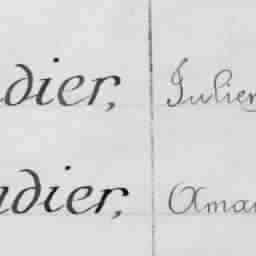 dier, Julien
adier, Aman